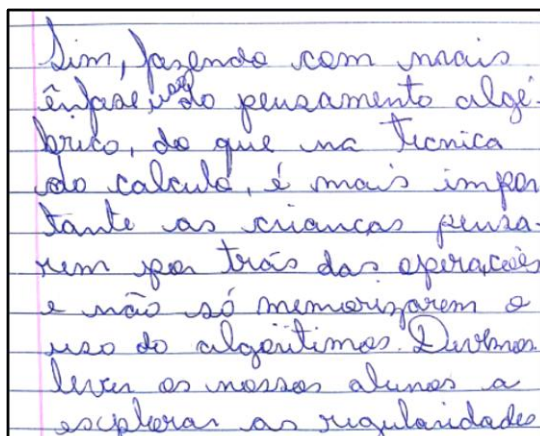 Sim, fazendo com mais
ênfase uso do pensamento algé-
brico, do que na tecnica
do calculo, é mais impor
tante as crianças pensa-
rem por trás das operações
e não só memorizarem o
uso do algoritimos. Devemos
levar os nossos alunos a
explorar as regularidades